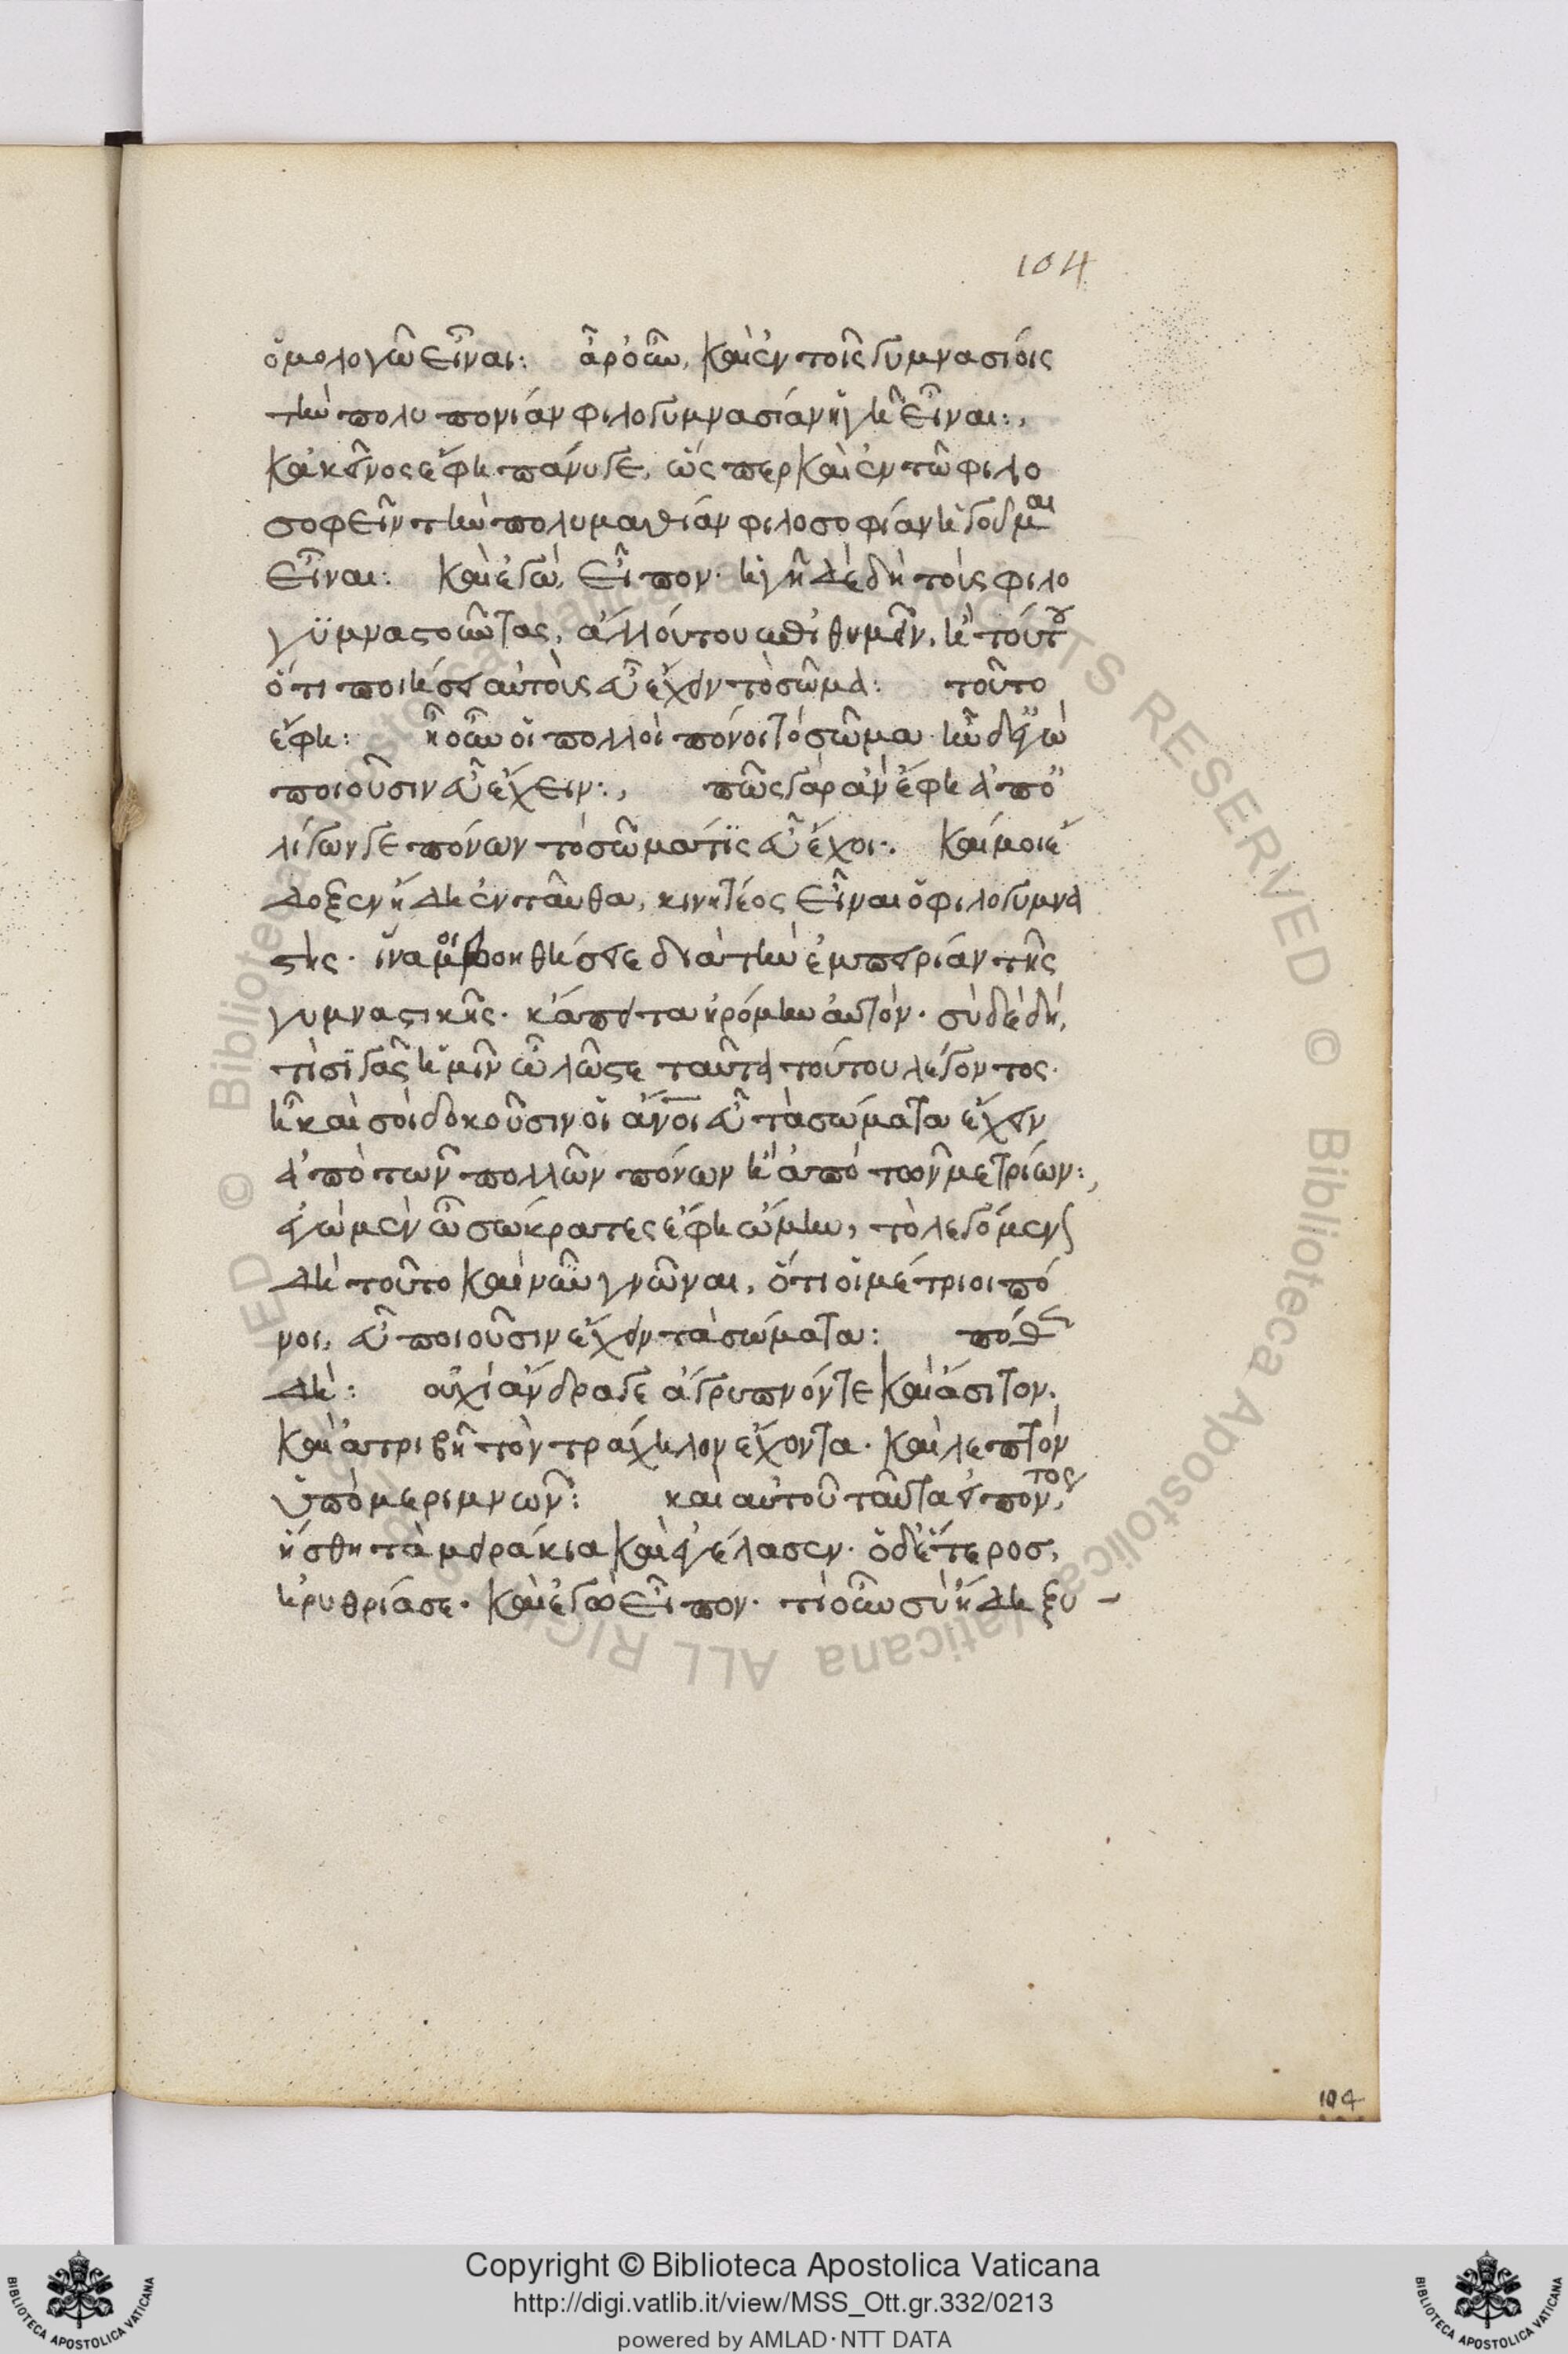 104
ὁμολογῶ εἶναι: ἆρ' οὖν, καὶ ἐν τοῖς γυμνασίοις
τὴν πολυπονίαν φιλογυμνασίαν ἡγῆ εἶναι:,
κἀκεῖνος ἔφη πάνυ γε, ὥς περ καὶ ἐν τῶ φιλο
σοφεῖν τὴν πολυμαθίαν φιλοσοφίαν ἡγοῦμαι
εἶναι: καὶ ἐγὼ, εἶπον· ἡγῆ δὲ δὴ τοὺς φιλο
γυμναστοῦντας, ἄλλου του ἐπιθυμεῖν, ἢ τούτου
ὅτι ποιήσει αὐτοὺς εὖ ἔχειν τὸ σῶμα: τοῦτο
ἔφη: ἦ οὖν οἱ πολλοὶ πόνοι τὸ σῶμα ἦν δ' ἐγὼ
ποιοῦσιν εὖ ἔχειν:, πῶς γὰρ ἂν ἔφη ἀπὸ
λίγων γε πόνων τὸ σῶμα τίς εὖ ἔχοι:. καί μοι ἔ
δοξεν ἤδη ἐνταῦθα, κινητέος εἶναι ὁ φιλογυμνα
στής· ἵνα μοι βοηθήσει διὰ τὴν ἐμπειρίαν τῆς
γυμναστικῆς· κἄπειτα ἠρόμην αὐτόν· σὺ δὲ δὴ,
τί σιγᾶς ἡμῖν ὦ λῶστε ταῦτα τούτου λέγοντος·
ἢ καὶ σοὶ δοκοῦσιν οἱ ἄνοι εὖ τὰ σώματα ἔχειν
ἀπὸ τῶν πολλῶν πόνων ἢ ἀπὸ τῶν μετρίων:,
ἐγὼ μὲν ὦ σώκρατες ἔφη ὤμην, τὸ λεγόμενον
δὴ τοῦτο κἂν νῦν γνῶναι, ὅτι οἱ μέτριοι πό
νοι, εὖ ποιοῦσιν ἔχειν τὰ σώματα: πόθεν
δή: οὐχὶ ἄνδρα γε ἀγρυπνόντε καὶ ἄσιτον,
καὶ ἀτριβῆ τὸν τράχηλον ἔχοντα· καὶ λεπτὸν
ὑπὸ μεριμνῶν: καὶ αὐτοῦ ταῦτα εἰπόντος,
ἥσθη τὰ μειράκια καὶ ἐγέλασεν· ὁ δ' ἕτερος,
ἠρυθρίασε· καὶ ἐγὼ εἶπον· τί οὖν σὺ ἤδη ξυ -
104
Copyright © Biblioteca Apostolica Vaticana
http://digi.vatlib.it/view/MSS_Ott.gr.332/0213
powered by AMLAD·NTT DATA